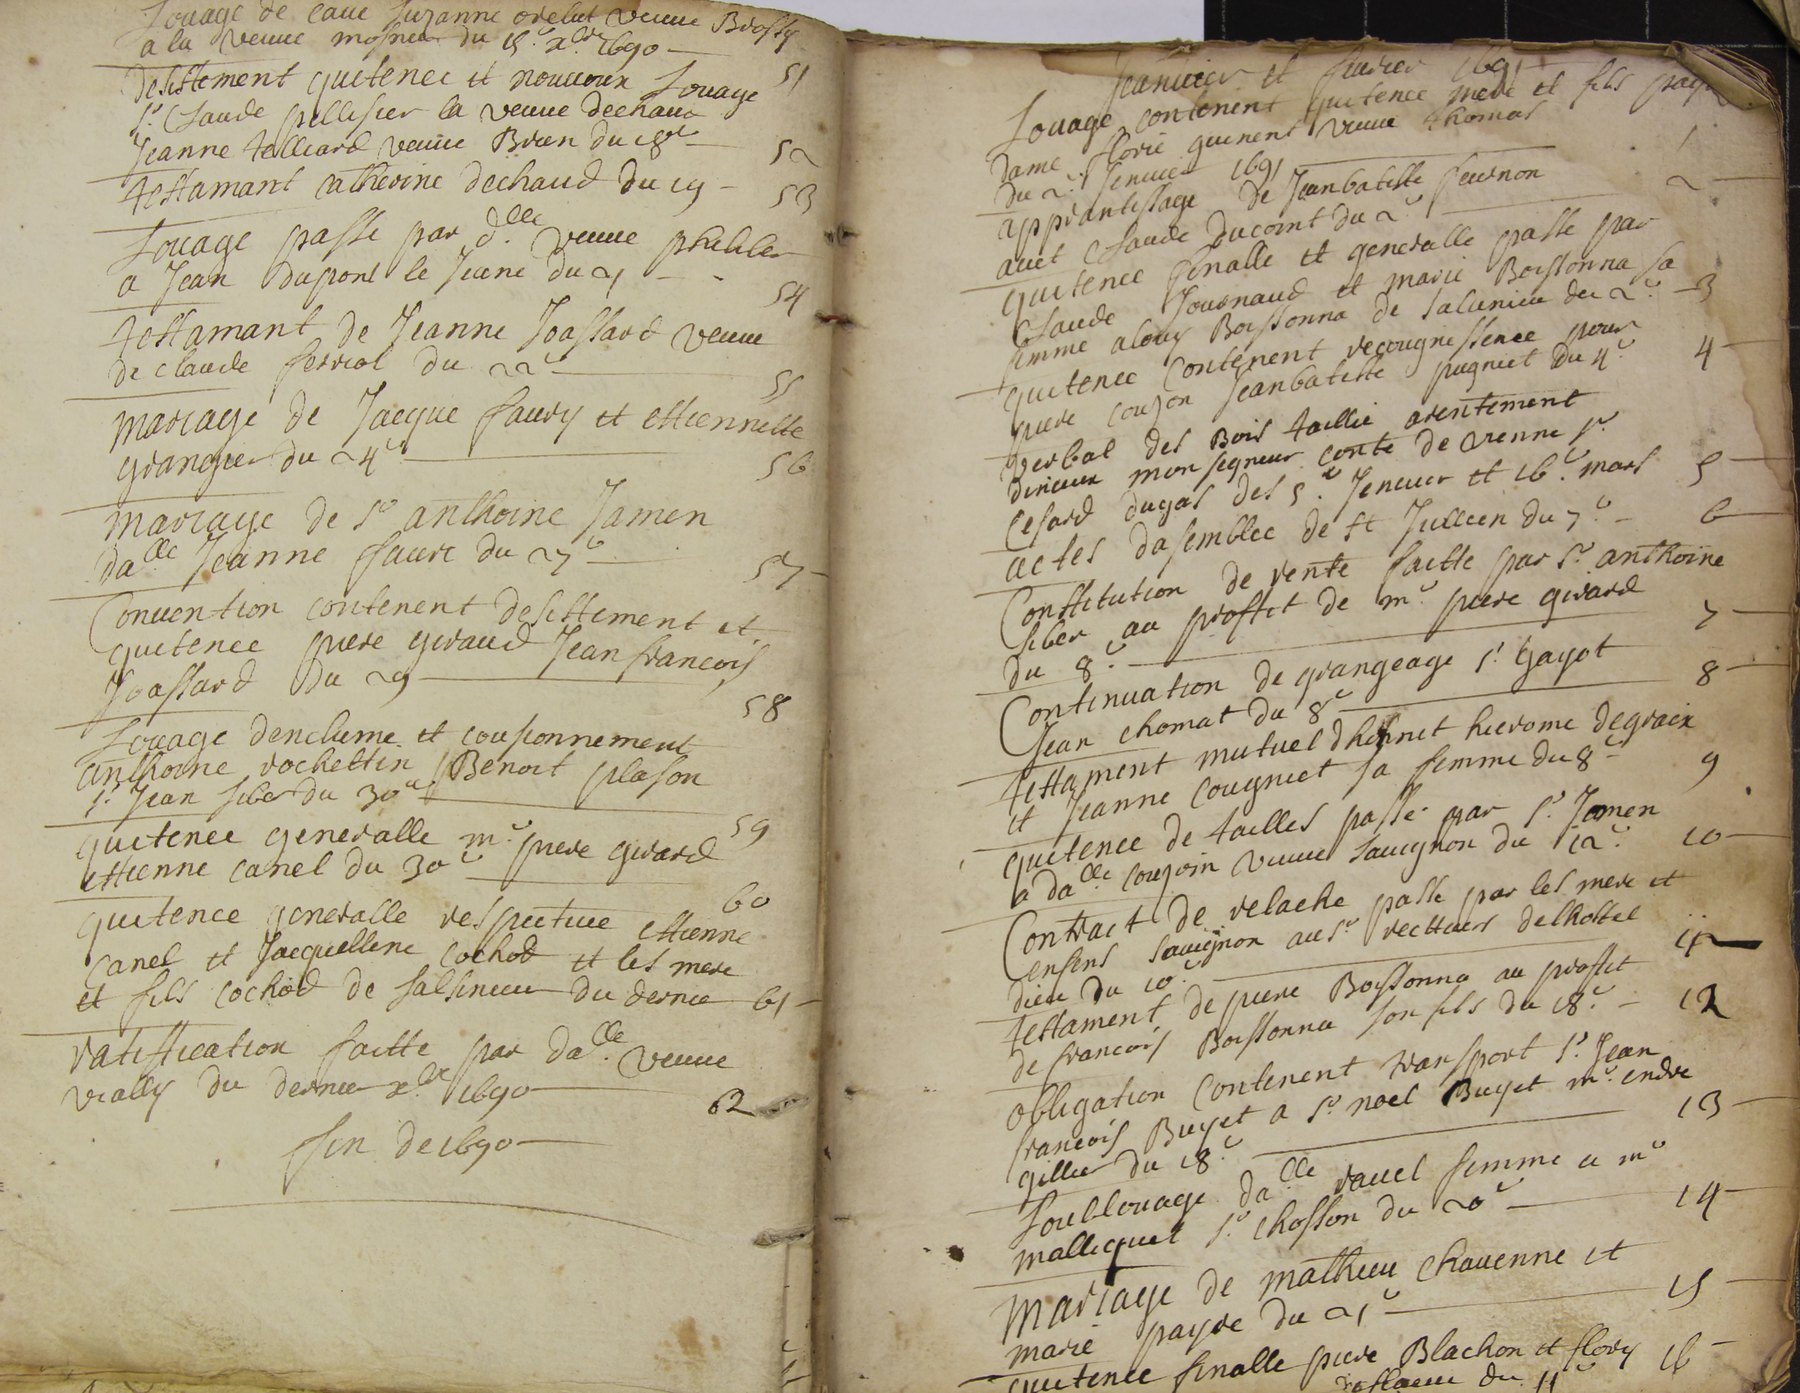 Louage de cave Suzanne orelut veuve Brossy
a la veuve mosnier du 15.e x.bre 1690
desistement quitence et nouveaux Louage
Sr. Claude pellisier la veuve dechaud 51
Jeanne talliard veuve Brun du 18e 52
testamant catherine dechaud du 19 53
Louage passe par d.lle veuve philiber
a Jean dupont le Jeune du 21 54
testamant de Jeanne Joassard veuve
de claude ferriol du 22e 55
mariage de Jacque faury et ettiennette
grangier du 24e 56
mariage de Sr anthoine Jamen
da.lle Jeanne faure du 27e 57
Convention contenent desittement et
quitence piere giraud Jean francois
Joassard du 29 58
Louage denclume et couponnement
anthoine rochettin Benoit plason
Sr. Jean siber du 30e 59
quitence generalle mr piere girard
ettienne canel du 30e 60
quitence generalle respective ettienne
Canel et Jacquelline cochod et les mere
et fils cochod de salsineu du dernier 61
ratiffication faitte par da.lle veuve
vially du dernier x.bre 1690 62
fin de 1690
Jeanvier et fevrier 1691
Louage contenent quitence mere et fils
Dame florie guinent veuve thomas
du 2e Jenvier 1691 1
apprantissage de Jeanbatiste feurnon
avec Claude ducoint du 2e 2
quitence finalle et generalle passe par
Claude Journaud et marie Boissonna sa
femme a louy Boissonna de salunieu du 2e 3
quitence contenent recougnissence pour
piere coujon Jeanbatiste pugniet du 4e 4
verbal des Bois taillie arentement
dirieux monseigneur conte de vienne Sr.
Cesard dugas des 5e Jenvier et 16e mars 5
actes dasemblee de st Jullien du 7e 6
Constitution de rente faitte par Sr. anthoine
siber au proffit de mr. piere girard
du 8e 7
Continuation de grangeage Sr. gayot
Jean chomat du 8e 8
testament mutuel dhonnet hierome degraix
et Jeanne cougniet sa femme du 8e 9
quitence de tailles passe par Sr. Jamen
a da.lle coujoin veuve sauvignon du 12e 10
Contract de relache passe par les mere et
enfens sauvignon au sr. recttuers delhottel
dieu du 10e 11
testament de piere Boissonna au proffit
de francois Boissonna son fils du 18e 12
obligation contenent transport Sr. Jean
francois Buyet a Sr noel Buyet mr. endre
gillier du 18e 13
Soublouage da.lle ravel femme a mr
malliquet Sr. chosson du 20e 14
Mariage de mathieu Chavenne et
marie payre du 21e 15
quitence finalle piere Blachon et flory 16
du 11e